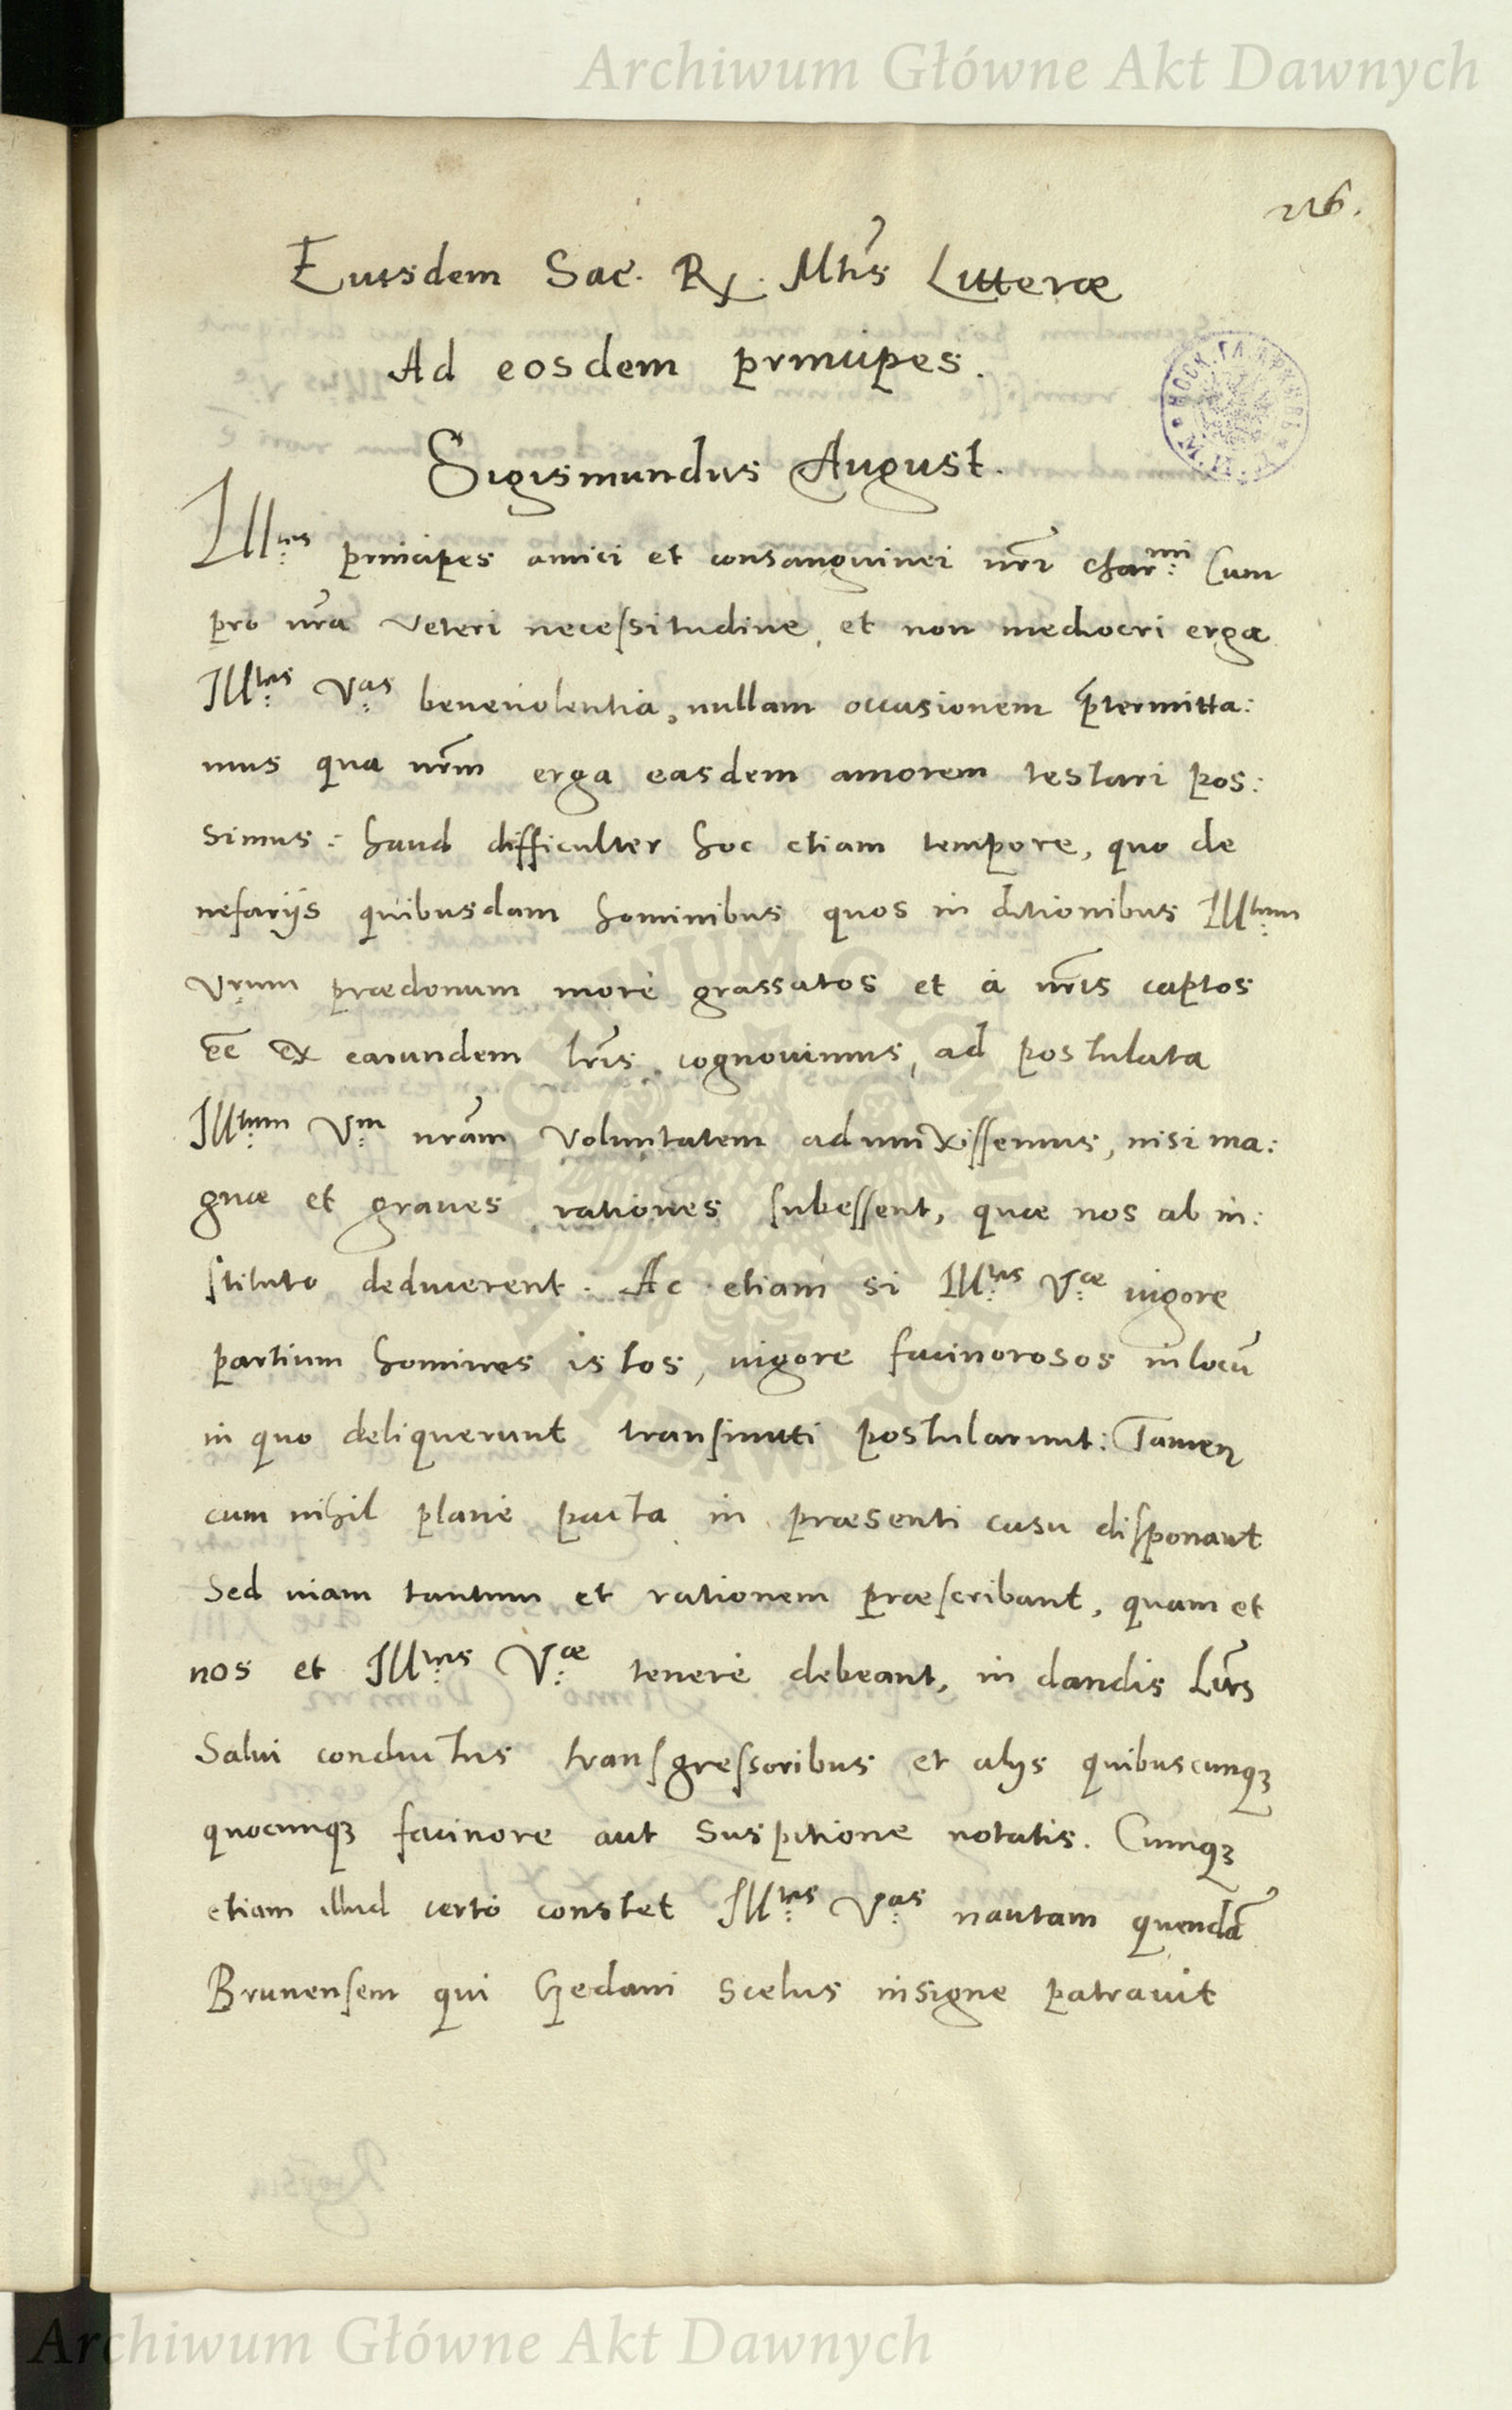 Archiwum Główne Akt Dawnych
216.
Eiusdem Sac. Rx. Mtis Litterae
Ad eosdem principes.
Sigismundus August.
Illtres principes amici et consanguinei nri charmi Cum
pro nra veteri necessitudine, et non mediocri erga
Illtes Vas beneuolentia, nullam occasionem ptermitta:
mus qua nrm erga easdem amorem testari pos:
simus: haud difficulter hoc etiam tempore, quo de
nefarijs quibusdam hominibus quos in ditionibus Illtum
Vrum praedonum more grassatos et à nris captos
ee ex earundem lris cognouimus, ad postulata
Illtum Vm nram voluntatem adiunxissemus, nisi ma:
gnae et graues rationes subessent, quae nos ab in:
stituto deducerent. Ac etiam si Illtes Vae uigore
partium homines istos, uigore facinorosos in locu
in quo deliquerunt transmitti postularunt: Tamen
cum nihil planè pacta in praesenti casu disponant
Sed uiam tantum et rationem praescribant, quam et
nos et Illtes Vae tenere debeant, in dandis Lris
Salui conductus transgressoribus et alijs quibuscunqz
quocunqz facinore aut Suspitione notatis. Cumqz
etiam illud certò constet Illtes Vas nautam quendā
Brunensem qui Gedani scelus insigne patrauit
Archiwum Główne Akt Dawnych